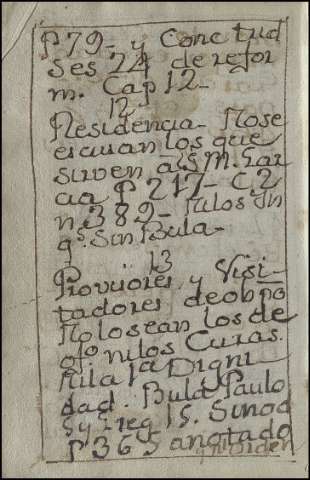 P 79 - y Conc tud
Ses 24 de refor
m. Cap 12 -
12
Residencia - Nose
escusan los que
sirven a S.M. Gar
cia P 217 - C. 2
n 389 - 
q.s Sin Bula -
13
Provisores y Visi-
tadores de obpo
No lo sean los de
of.o ni los Curas.
Ni la 1a Digni
dad. Bula Paulo
5 y 2 reg 15. Sinod
P 365 anotado